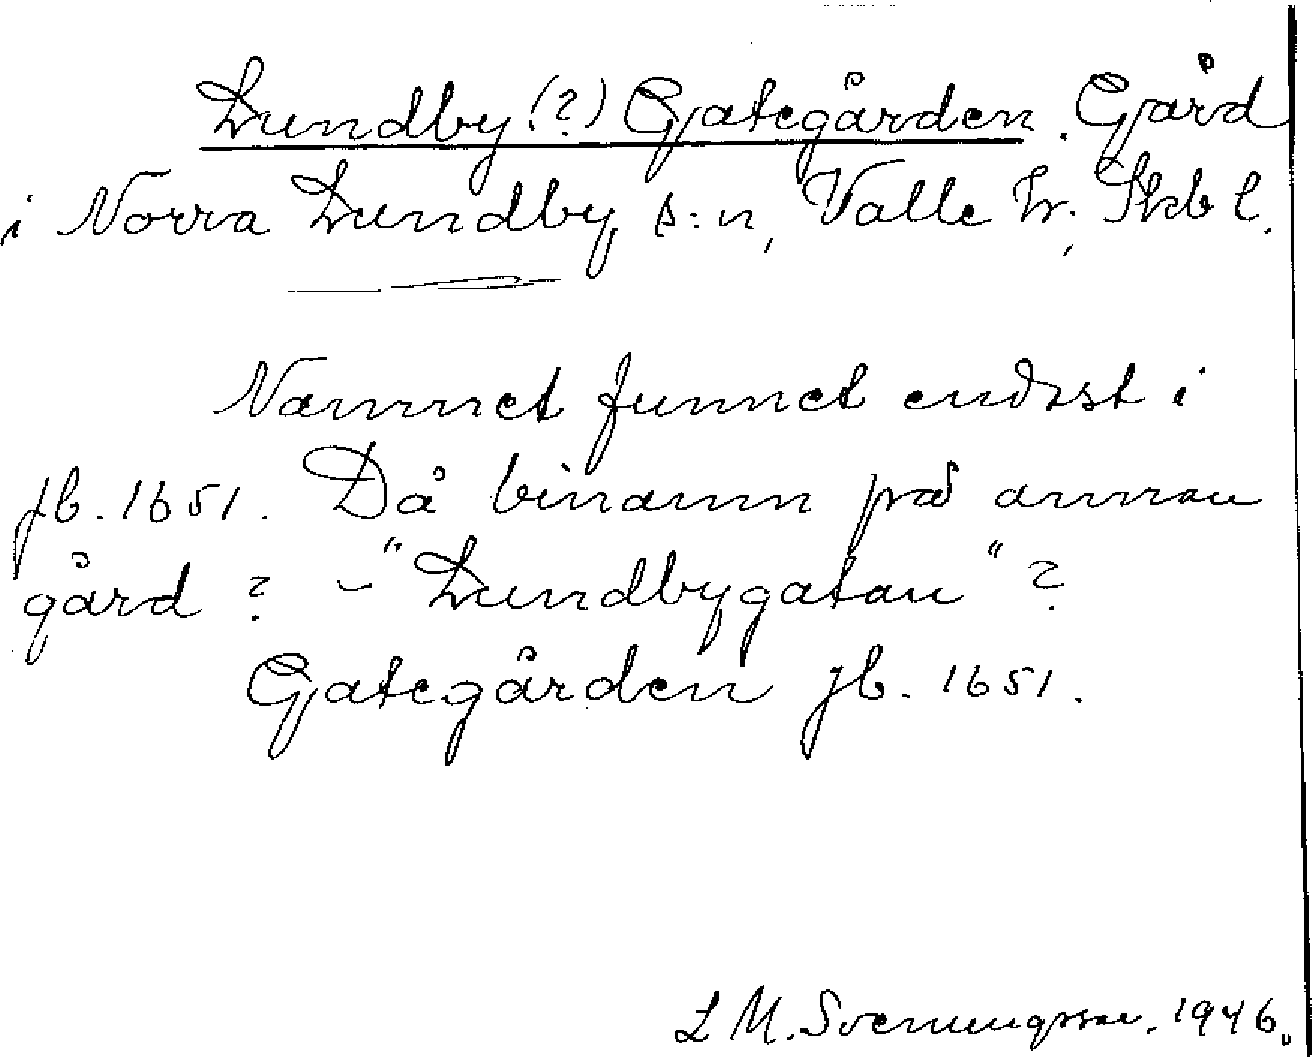 Lundby (?) Gategården. Gård
i Norra Lundby s:n, Valle hr, Skb l.
Namnet funnet endast i
jb. 1651. Då binamn på annan
gård? - "Lundbygatan"?
Gategården jb. 1651.
L M. Svenungsson. 1946.